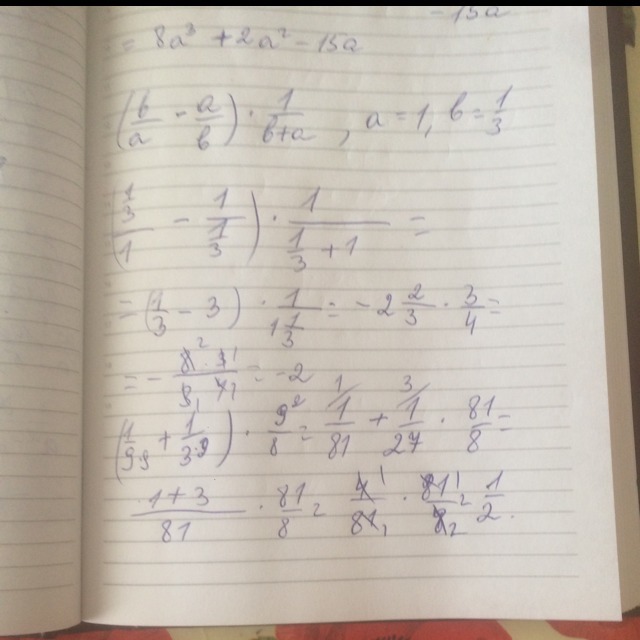 - 15a
= 8a³ + 2a² - 15a
(b/a - a/b) · 1/(b+a), a = 1, b = 1/3
((1/3)/1 - 1/(1/3)) · 1/(1/3 + 1) =
= (1/3 - 3) · 1/(1 1/3) = -2 2/3 · 3/4 =
= - (8² · 3¹)/(3₁ · 4₁) = -2
(1/9⁹ + 1/3⁹) · 9²/8 = 1/81 + 1/27 · 81/8 =
(1+3)/81 · 81/8 = 4¹/81₁ · 81¹/8₂ = 1/2.